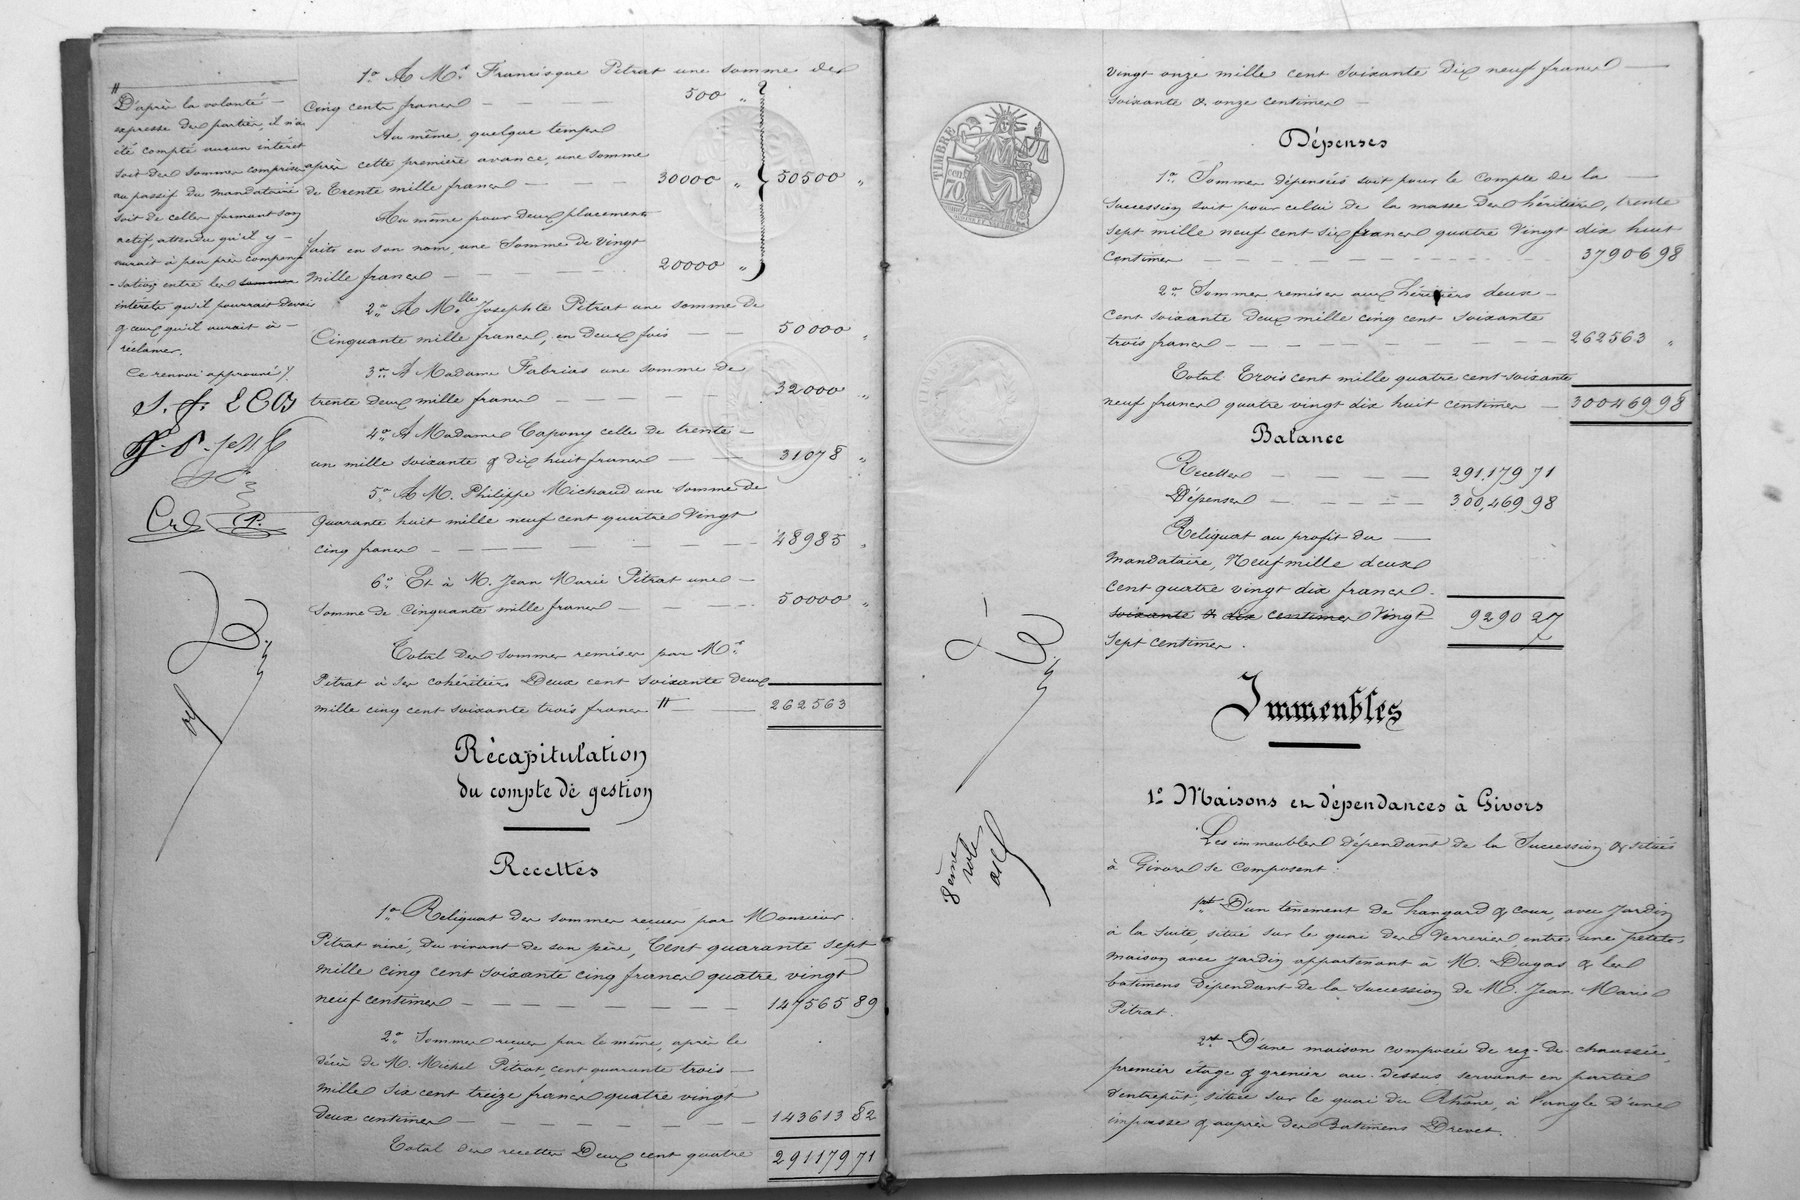 1º A Mr Francisque Pitrat une somme de
cinq cents francs — — — 500 "
Au même, quelque temps
après cette première avance, une somme
de Trente mille francs — — — 30000 " 50500 "
Au même pour deux placements
faits en son nom, une Somme de Vingt
mille francs — — — 20000 "
2º A Mlle Josephte Pitrat une somme de
Cinquante mille francs, en deux fois — — 50000 "
3º A Madame Fabrias une somme de
trente deux mille francs — — — 32000 "
4º A Madame Capony celle de trente —
un mille soixante & dix huit francs — — 31078 "
5º A M. Philippe Michaud une somme de
quarante huit mille neuf cent quatre Vingt
cinq francs — — — 48985 "
6º Et à M. Jean Marie Pitrat une —
somme de Cinquante mille francs — — — 50000 "
Total des sommes remises par Mr
Pitrat à ses cohéritiers Deux cent soixante deux
mille cinq cent soixante trois francs # — — 262563
#
D'après la volonté —
expresse des parties, il n'a
été compté aucun intérêt
soit des sommes comprises
au passif du mandataire
soit de celles formant son
actif, attendu qu'il y —
aurait à peu près compen-
-sation entre les sommes
intérêts qu'il pourrait devoir
& ceux qu'il aurait à —
réclamer.
Ce renvoi approuvé
Récapitulation
du compte de gestion
Recettes
1º Reliquat des sommes reçues par Monsieur
Pitrat ainé, du vivant de son père, Cent quarante sept
mille cinq cent soixante cinq francs quatre vingt
neuf centimes — — — 147565 89
2º Sommes reçues par le même, après le
décès de M. Michel Pitrat, cent quarante trois —
mille six cent treize francs quatre vingt
deux centimes — — — 143613 82
Total des recettes Deux cent quatre 291179 71
vingt onze mille cent soixante dix neuf francs —
soixante & onze centimes —
TIMBRE
70 cen
Dépenses
1º Sommes dépensées soit pour le compte de la —
succession soit pour celui de la masse des héritiers, trente
sept mille neuf cent six francs quatre Vingt dix huit
centimes — — — 37906 98
2º Sommes remises aux héritiers deux —
cent soixante Deux mille cinq cent soixante
trois francs — — — 262563 "
Total Trois cent mille quatre cent soixante
neuf francs quatre vingt dix huit centimes — 300469 98
Balance
Recettes — — — 291,179 71
Dépenses — — — 300,469 98
Reliquat au profit du —
mandataire, Neuf mille deux
cent quatre vingt dix francs
soixante & dix centimes Vingt 9290 27
sept centimes.
Immeubles
1º Maisons et dépendances à Givors
Les immeubles dépendant de la Succession & situés
à Givors se composent :
1nt D'un tènement de hangard & cour, avec jardin
à la suite, situé sur le quai des Verreries, entre une petite
maison avec jardin appartenant à M. Dugas & les
bâtimens dépendant de la succession de M. Jean Marie
Pitrat.
2nt D'une maison composée de rez-de-chaussée,
premier étage & grenier au-dessus, servant en partie
d'entrepôt, située sur le quai du Rhône, à l'angle d'une
impasse & auprès des Bâtimens Drevet.
8ème
rôle